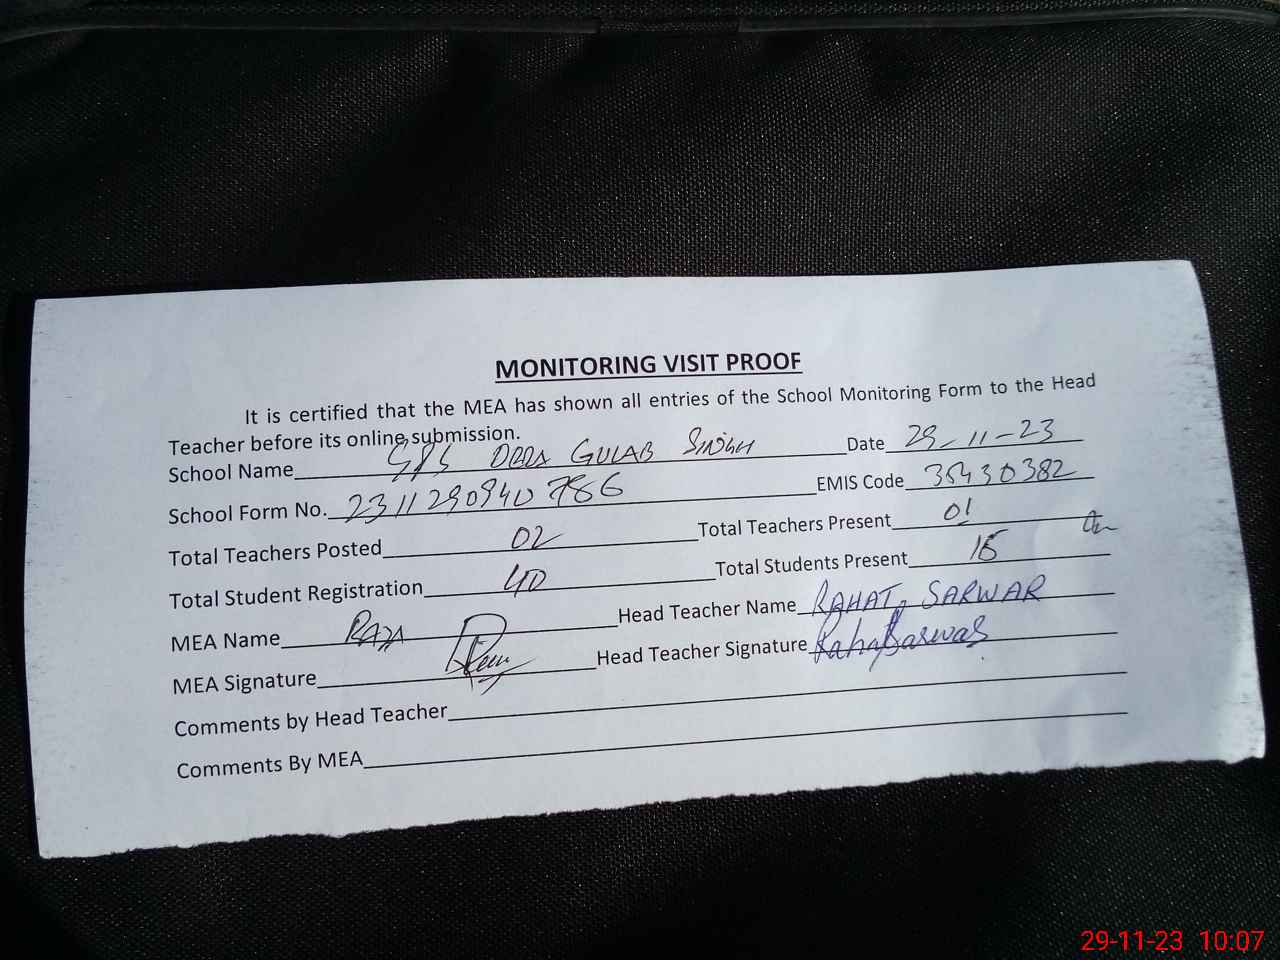 MONITORING VISIT PROOF
It is certified that the MEA has shown all entries of the School Monitoring Form to the Head
Teacher before its online submission.
School Name GPS ODDA GULAB SINGH Date 29-11-23
School Form No. 2311290940786 EMIS Code 35430382
Total Teachers Posted 02 Total Teachers Present 01
Total Student Registration 40 Total Students Present
MEA Name RAZA Head Teacher Name RAHAT SARWAR
MEA Signature Head Teacher Signature Rahat Sarwar
Comments by Head Teacher
Comments By MEA
29-11-23 10:07